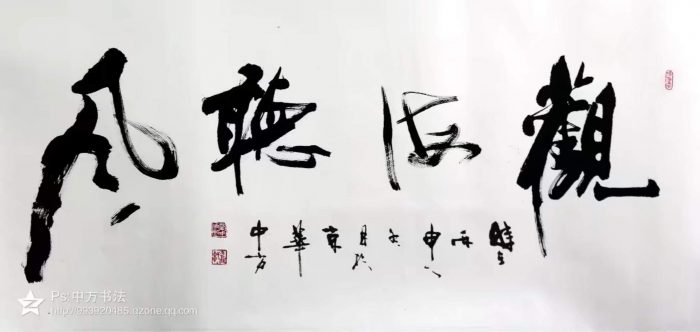 觀海聽風
時在丙申八
月於京華
中方
Ps:中方书法
http://993920485.qzone.qq.com